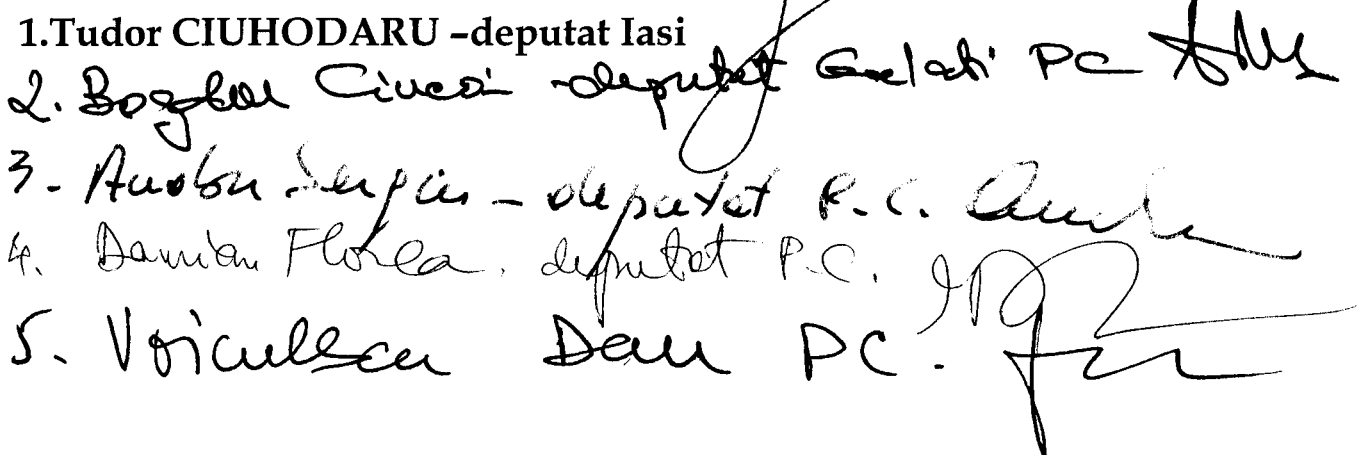 1.Tudor CIUHODARU –deputat Iasi
2. Bogdan Ciucă -deputat Galati PC
3. Andon Sergiu - deputat P.C.
4. Damian Florea. deputat P.C.
5. Voiculescu Dan PC.